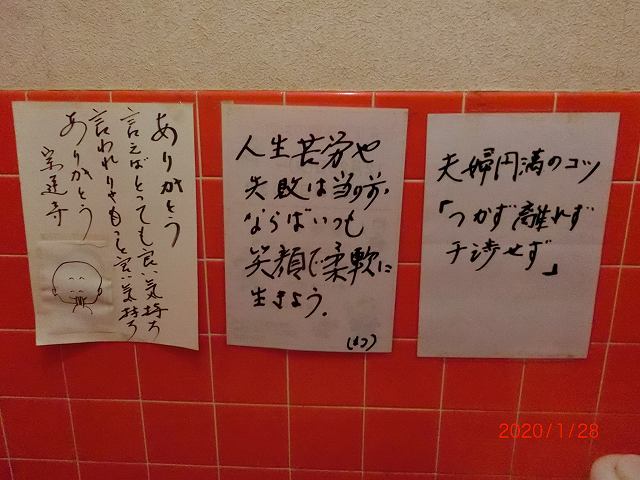 ありがとう
言えばとっても良い気持ち
言われりゃもっと良い気持ち
ありがとう
人生苦労や
失敗は当り前、
ならばいつも
笑顔で柔軟に
生きよう。
夫婦円満のコツ
「つかず離れず
干渉せず」
2020/1/28